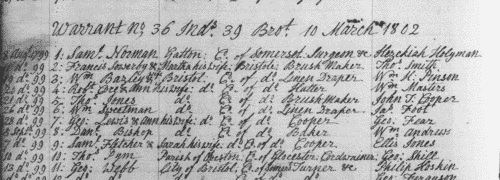 Warrant No. 36 Ind. 39 Brot. 10 March 1802
99 1: Saml. Norman Co. of Somerset Surgeon & Hezekiah Holyman
d. 99 2: Francis & Martha his wife Bristol: Brush Maker Thos. Smith
d. 99 3: Wm. Bristol: Co. of d. Linen Draper Wm. K. Pinson
d. 99 4: Robt. & Ann his wife d. Co. of d. Hatter Wm. Masters
d. 99 5: Thos. Jones d. Co. of d. Brush Maker John T. Cooper
d. 99 6: Wm. d. Co. of d. Linen Draper Jas. Foot
d. 99 7: Geo: Lewis & Ann his wife: d. Co. of d. Cooper Geo: Fear
99 8: Danl. Bishop d. Co. of d. Baker Wm. Andrews
d. 99 9: Saml. Fletcher & Sarah his wife: d. Co. of d. Cooper Ellis Jones
d. 99 10: Thos. Pym Parish of Co. of Glocester: Cordwainer Geo: Shill
d. 99 11: Geo: Webb City of Bristol, Co. of Turner & Philip Hoskin
Geo: Ferguson